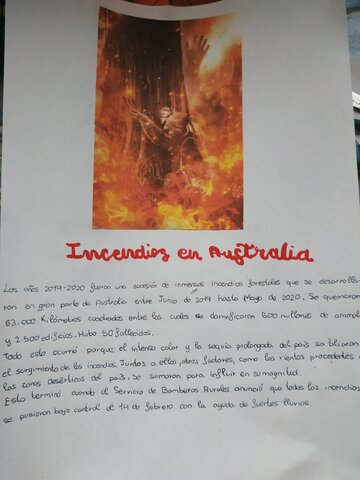 Incendios en Australia
Los años 2019-2020 fueron una sucesión de inmensos incendios forestales que se desarrolla-
ron en gran parte de Australia entre Junio de 2019 hasta Mayo de 2020. Se quemaron
63.000 Kilómetros cuadrados entre los cuales se damnificaron 500 millones de animal
y 2.500 edificios. Hubo 50 fallecidos.
Todo esto ocurrió porque el intenso calor y la sequía prolongada del país
el surgimiento de los incendios. Juntos a ellos, otros factores, como los vientos procedentes
las zonas desérticas del país, se sumaron para influir en su magnitud.
Esto terminó cuando el Servicio de Bomberos Rurales anunció que todos los incendios
se pusieron bajo control el 14 de febrero con la ayuda de fuertes lluvias.